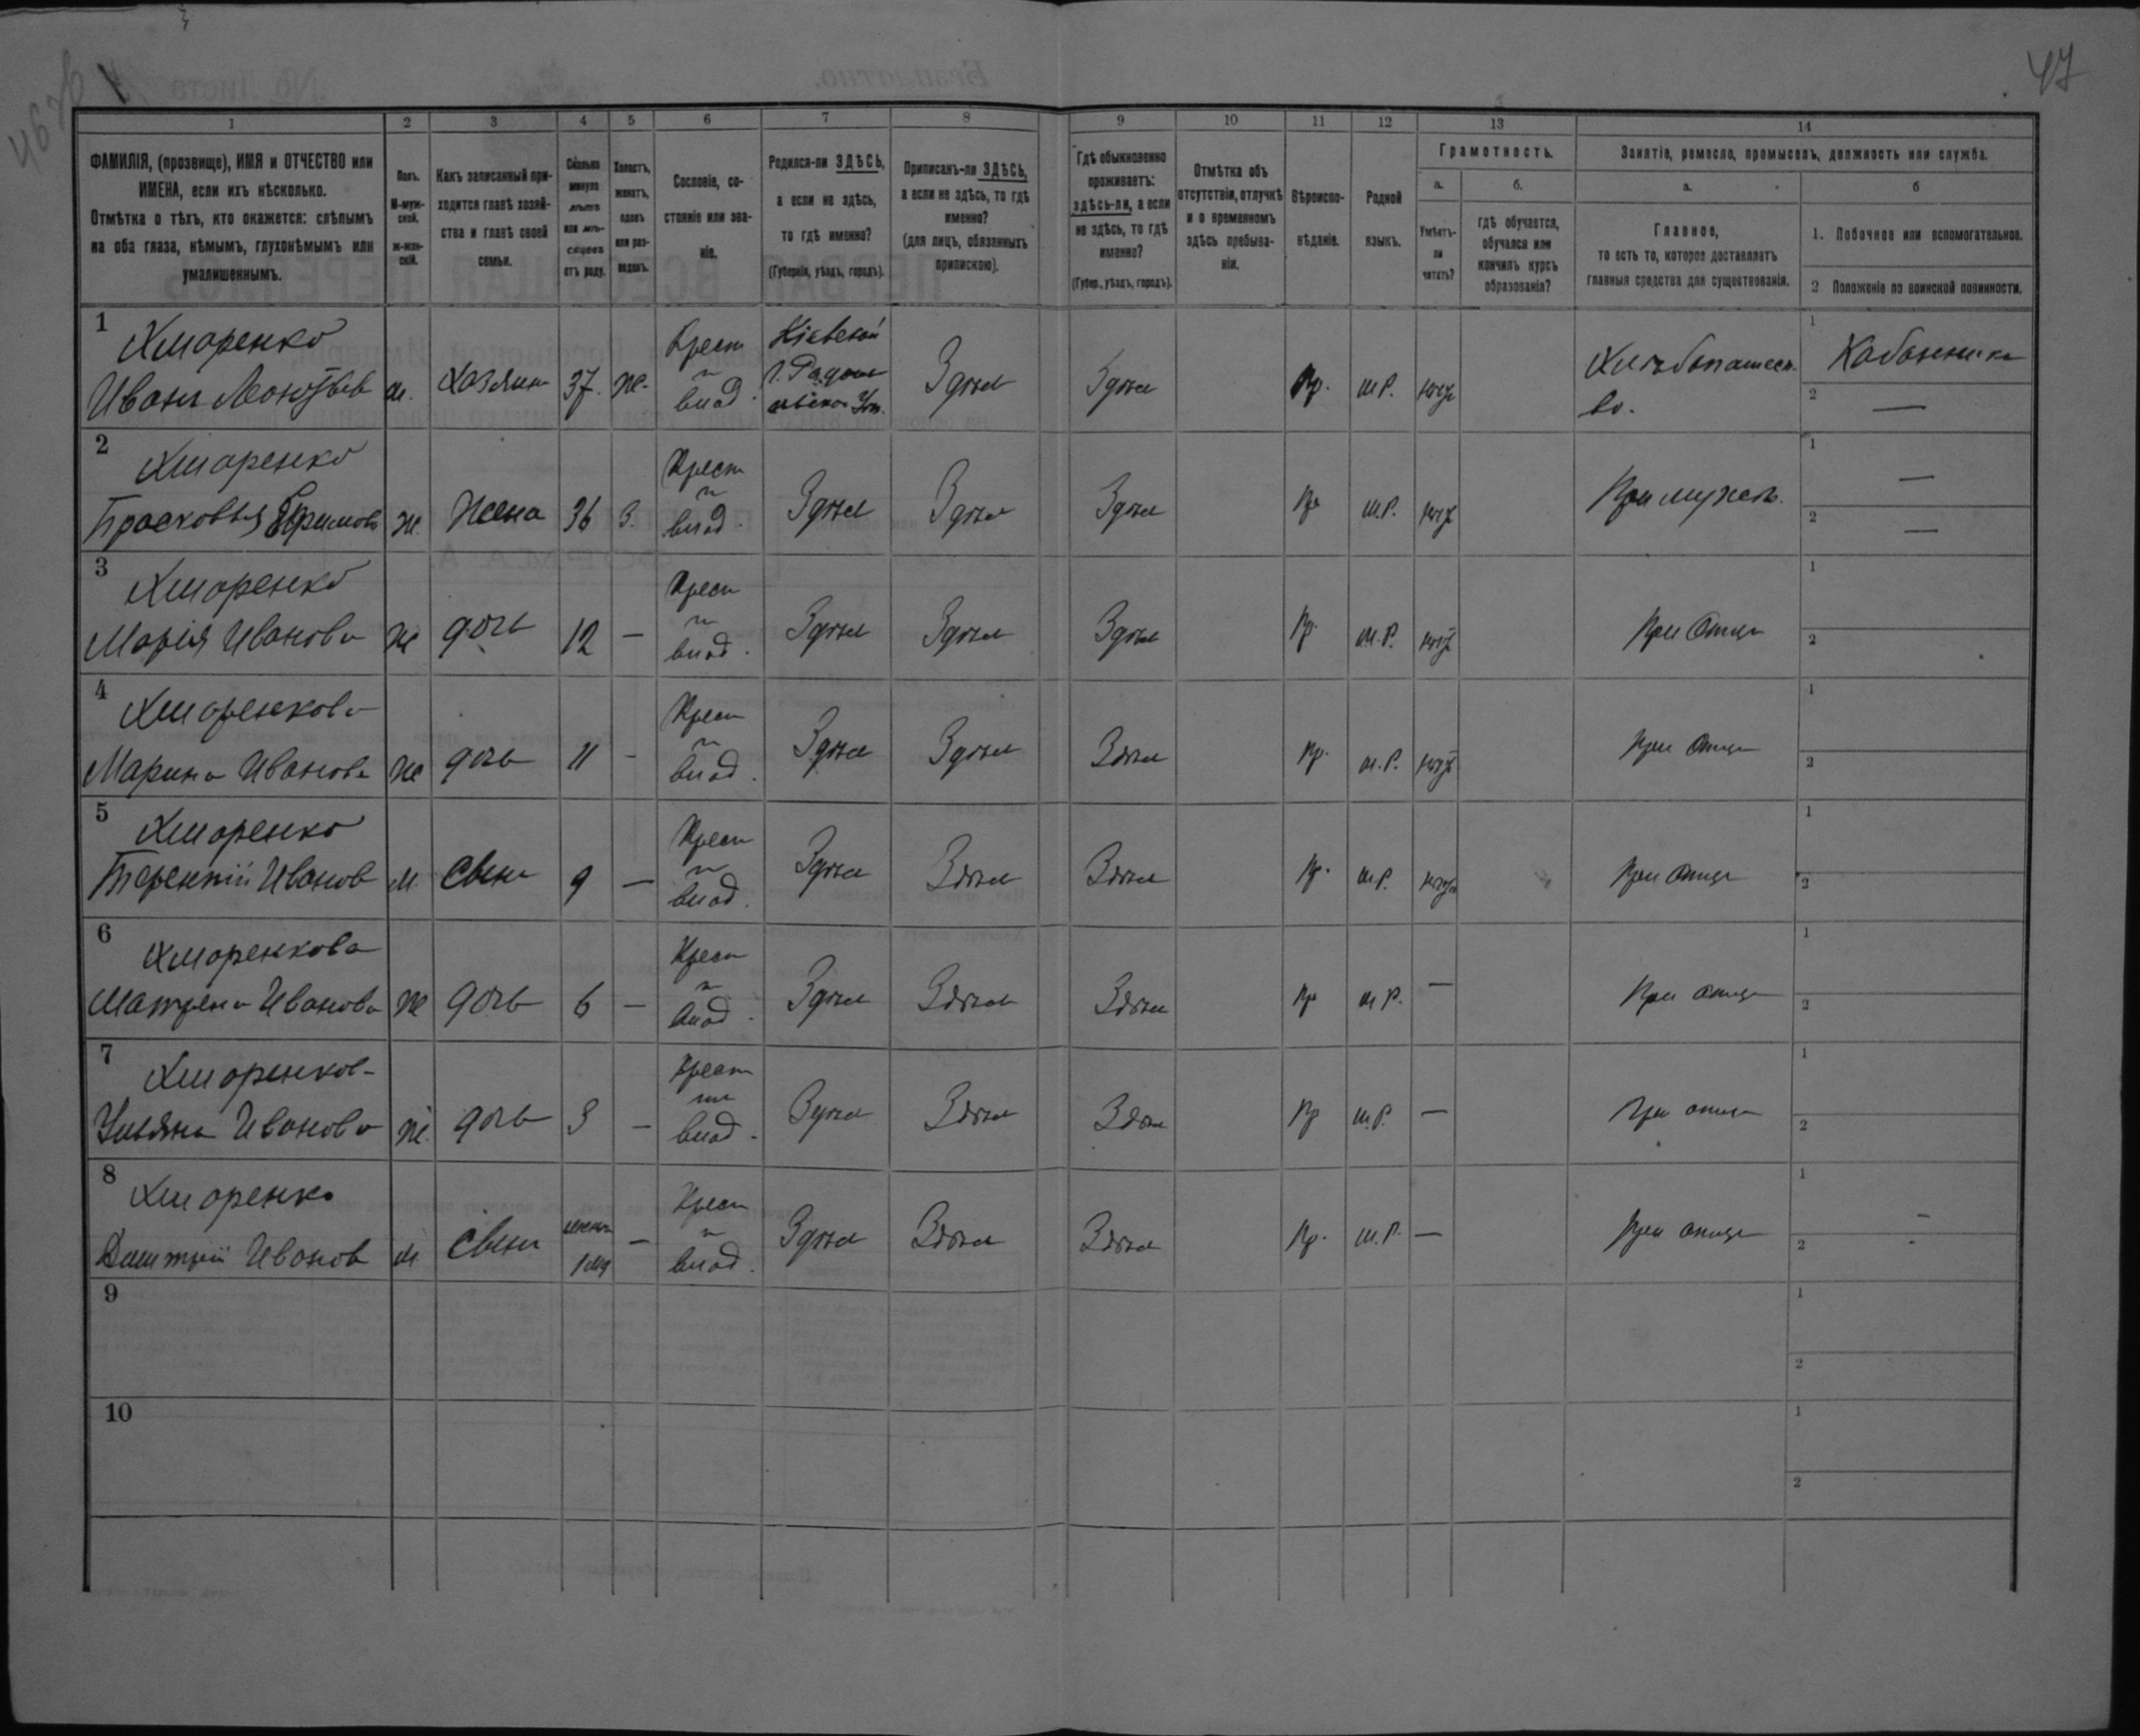 47
1 2 3 4 5 6 7 8 9 10 11 12 13 14
ФАМИЛІЯ, (прозвище), ИМЯ и ОТЧЕСТВО или
ИМЕНА, если ихъ нѣсколько.
Отмѣтка о тѣхъ, кто окажется: слѣпымъ
на оба глаза, нѣмымъ, глухонѣмымъ или
умалишеннымъ.
Полъ.
М-муж-
ской.
ж-жен-
скій.
Какъ записанный при-
ходится главѣ хозяй-
ства и главѣ своей
семьи.
Сколько
минуло
лѣтъ
или мѣ-
сяцевъ
отъ роду.
Холостъ,
женатъ,
вдовъ
или раз-
веденъ.
Сословіе, со-
стояніе или зва-
ніе.
Родился-ли ЗДѢСЬ,
а если не здѣсь,
то гдѣ именно?
(Губернія, уѣздъ, городъ).
Приписанъ-ли ЗДѢСЬ,
а если не здѣсь, то гдѣ
именно?
(для лицъ, обязанныхъ
припискою).
Гдѣ обыкновенно
проживаетъ:
здѣсь-ли, а если
не здѣсь, то гдѣ
именно?
(Губер., уѣздъ, городъ).
Отмѣтка объ
отсутствіи, отлучкѣ
и о временномъ
здѣсь пребыва-
ніи.
Вѣроиспо-
вѣданіе.
Родной
языкъ.
Грамотность.
а.
Умѣетъ-
ли
читать?
б.
гдѣ обучается,
обучался или
кончилъ курсъ
образованія?
Занятіе, ремесло, промыселъ, должность или служба.
а.
Главное,
то есть то, которое доставляетъ
главныя средства для существованія.
б
1. Побочное или вспомогательное.
2 Положеніе по воинской повинности.
1 Хмаренко
Иванъ м. Хозяинъ 37. ж. Крест
влад. Кіевской
Здѣсь Здѣсь Пр. м.р. 1
2 —
2 Хмаренко
ж. Жена 36 З. Крест
влад. Здѣсь Здѣсь Здѣсь Пр м.р. При мужѣ 1 —
2 —
3 Хмаренко
Марія Иванова ж дочь 12 — Крест
влад. Здѣсь Здѣсь Здѣсь Пр. м.р. При Отцѣ 1
2
4 Хмаренкова
Марина Иванова ж дочь 11 - Крест
влад. Здѣсь Здѣсь Здѣсь Пр. м.р. При Отцѣ 1
2
5 Хмаренко
Терентій Иванов м Сынъ 9 — Крест
влад. Здѣсь Здѣсь Здѣсь Пр. м.р. При Отцѣ 1
2
6 Хмаренкова
Матрена Иванова ж дочь 6 — Крест
влад. Здѣсь Здѣсь Здѣсь Пр м р. — При отцѣ 1
2
7 Хмаренков-
Ульяна Иванова ж. дочь 3 — Крест
влад. Здѣсь Здѣсь Здѣсь Пр м.р. — При отцѣ 1
2
8 Хмаренко
Дмитрій Иванов м. Сынъ — Крест
влад. Здѣсь Здѣсь Здѣсь Пр. м.р. — При отцѣ 1 –
2 -
9 1
2
10 1
2